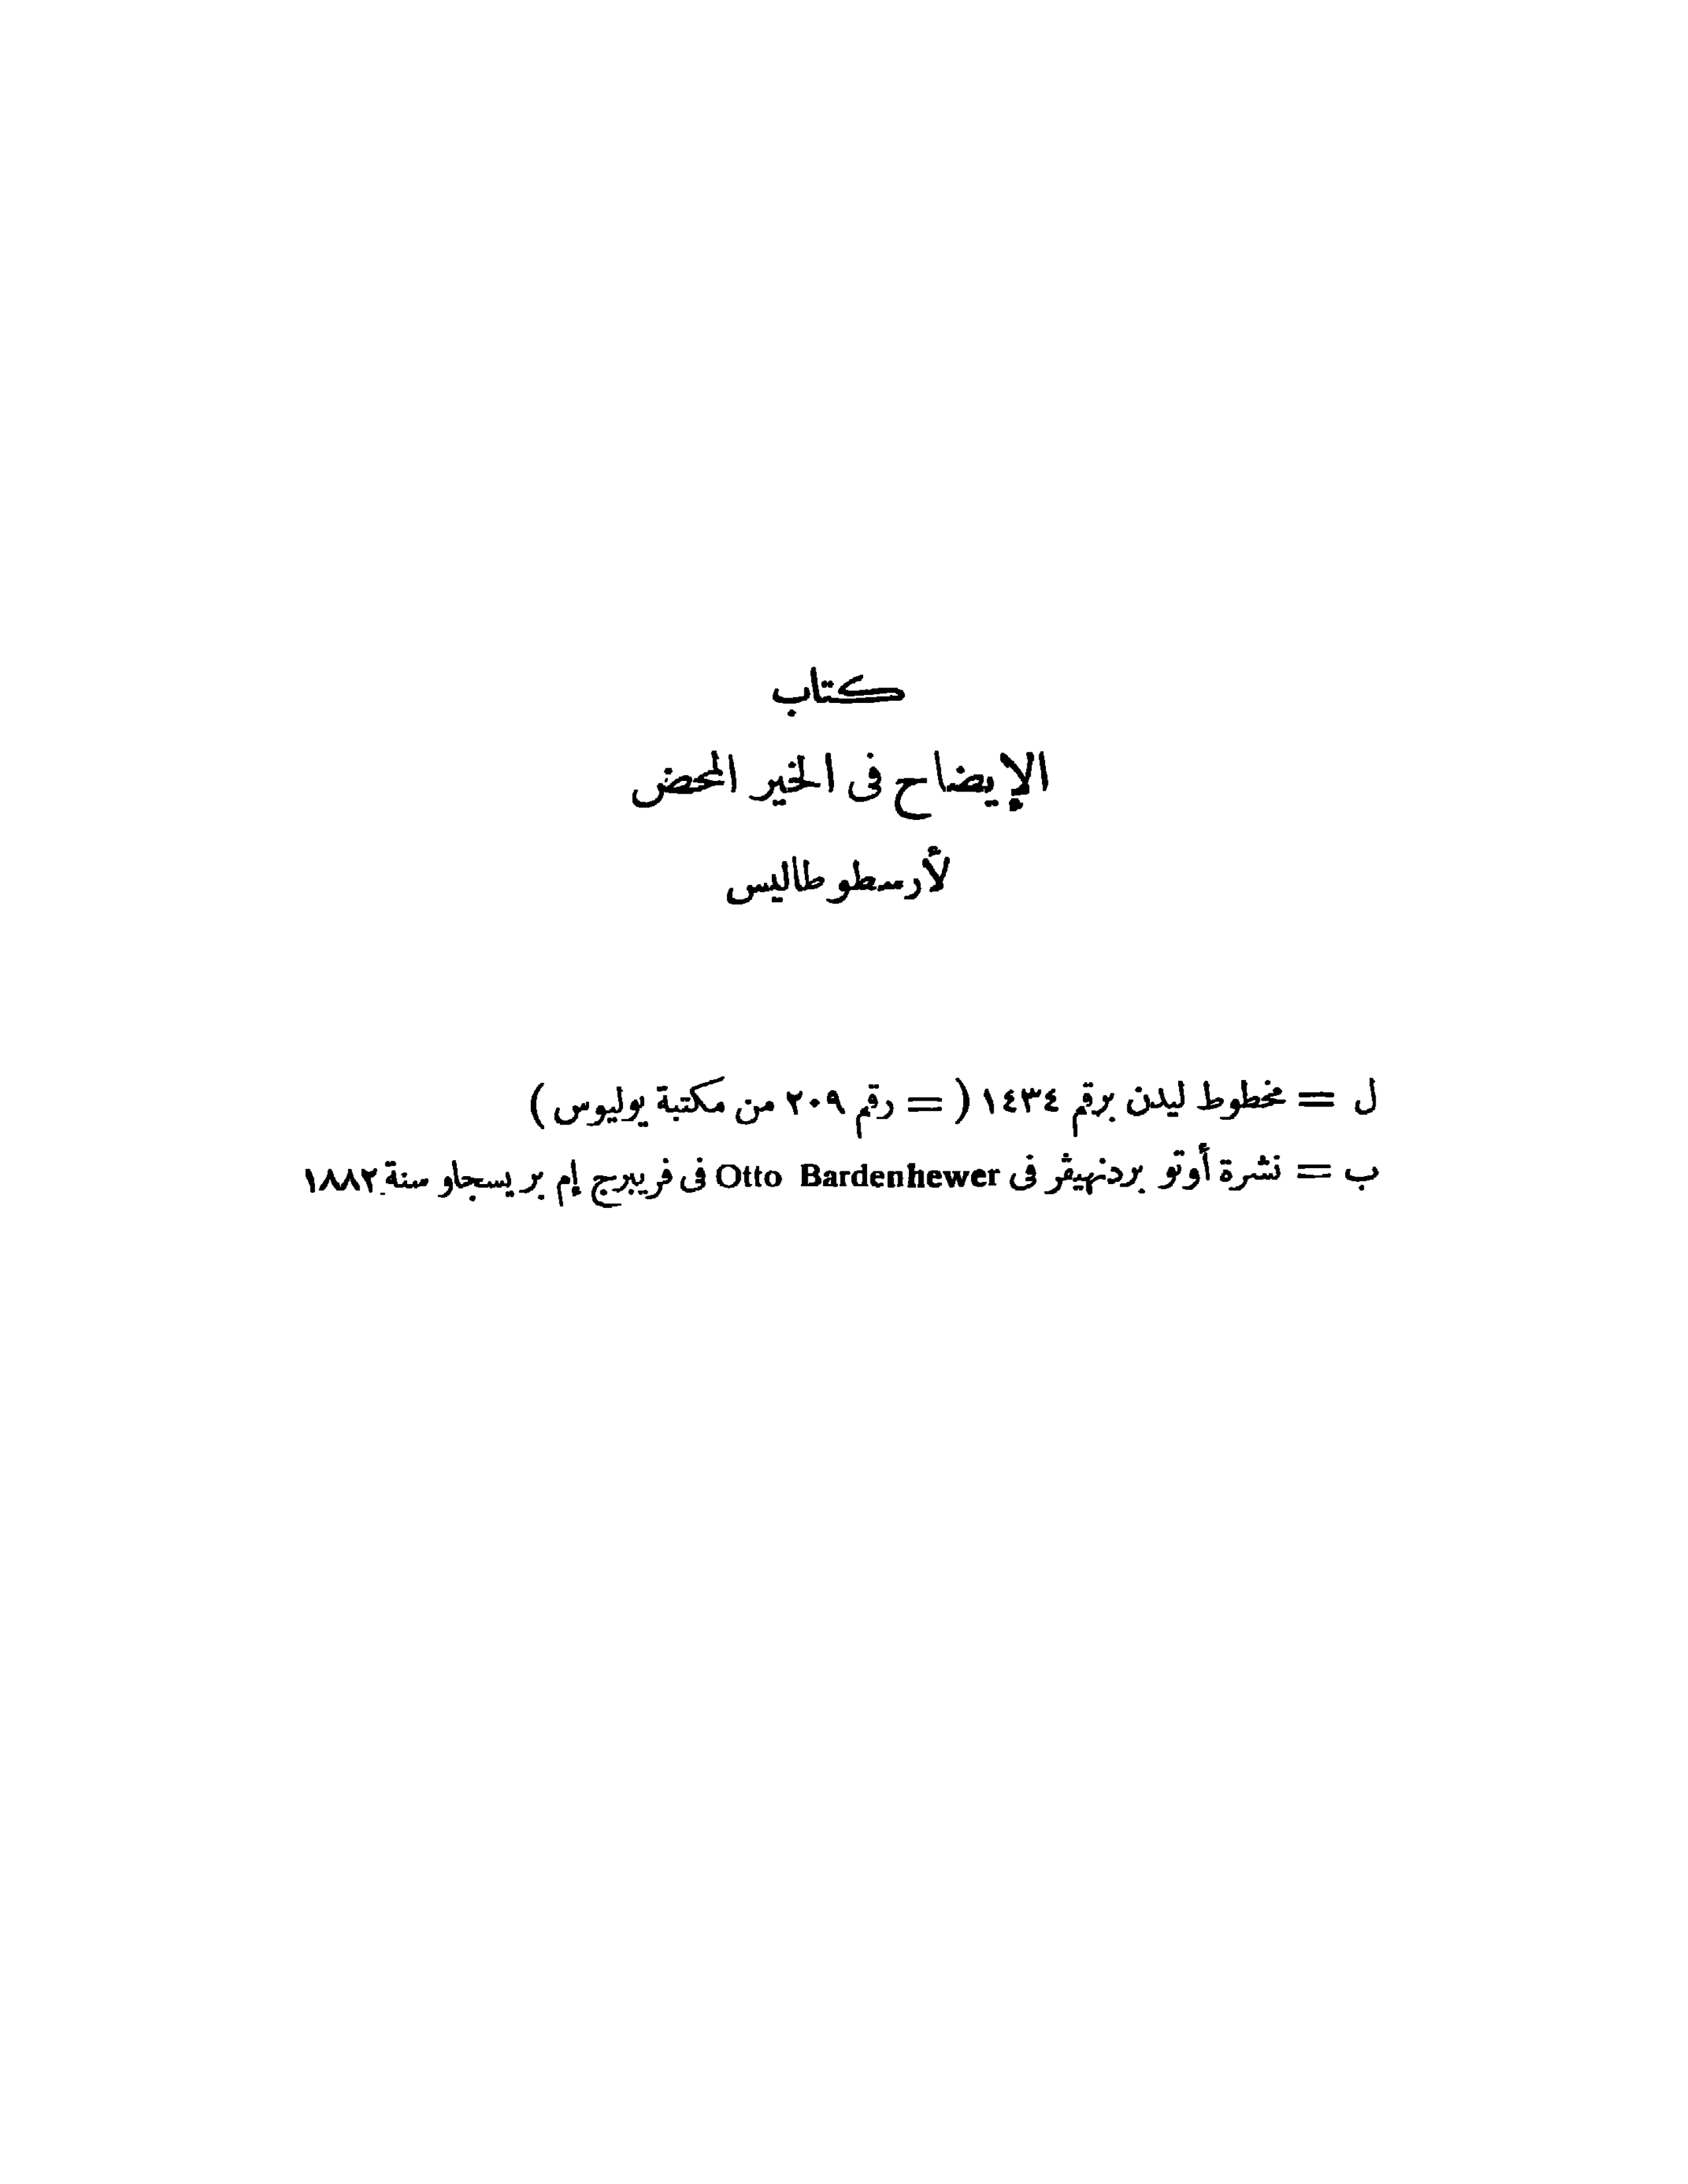 كتاب
الإيضاح فى الخير المحض
لأرسطوطاليس
ل = مخطوط ليدن برقم ١٤٣٤ ( = رقم ٢٠٩ من مكتبة يوليوس )
ب = نشرة أوتو بردنهيڤر فى Otto Bardenhewer فى فريبرج إم بريسجاو سنة ١٨٨٢